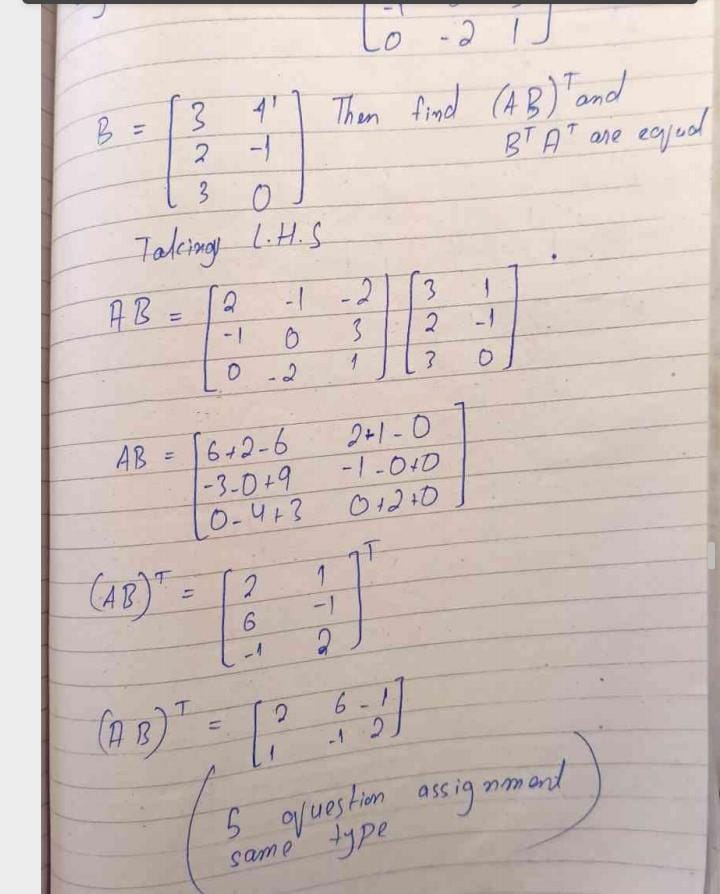 0 -2 1
B = [ 3 1
2 -1
3 0 ] Then find (AB)ᵀ and
Bᵀ Aᵀ are equal
Taking L.H.S
AB = [ 2 -1 -2
-1 0 3
0 -2 1 ] [ 3 1
2 -1
3 0 ]
AB = [ 6+2-6 2+1-0
-3-0+9 -1-0+0
0-4+3 0+2+0 ]
(AB)ᵀ = [ 2 1
6 -1
-1 2 ]ᵀ
(AB)ᵀ = [ 2 6 -1
1 -1 2 ]
( 5 question assignment
same type )